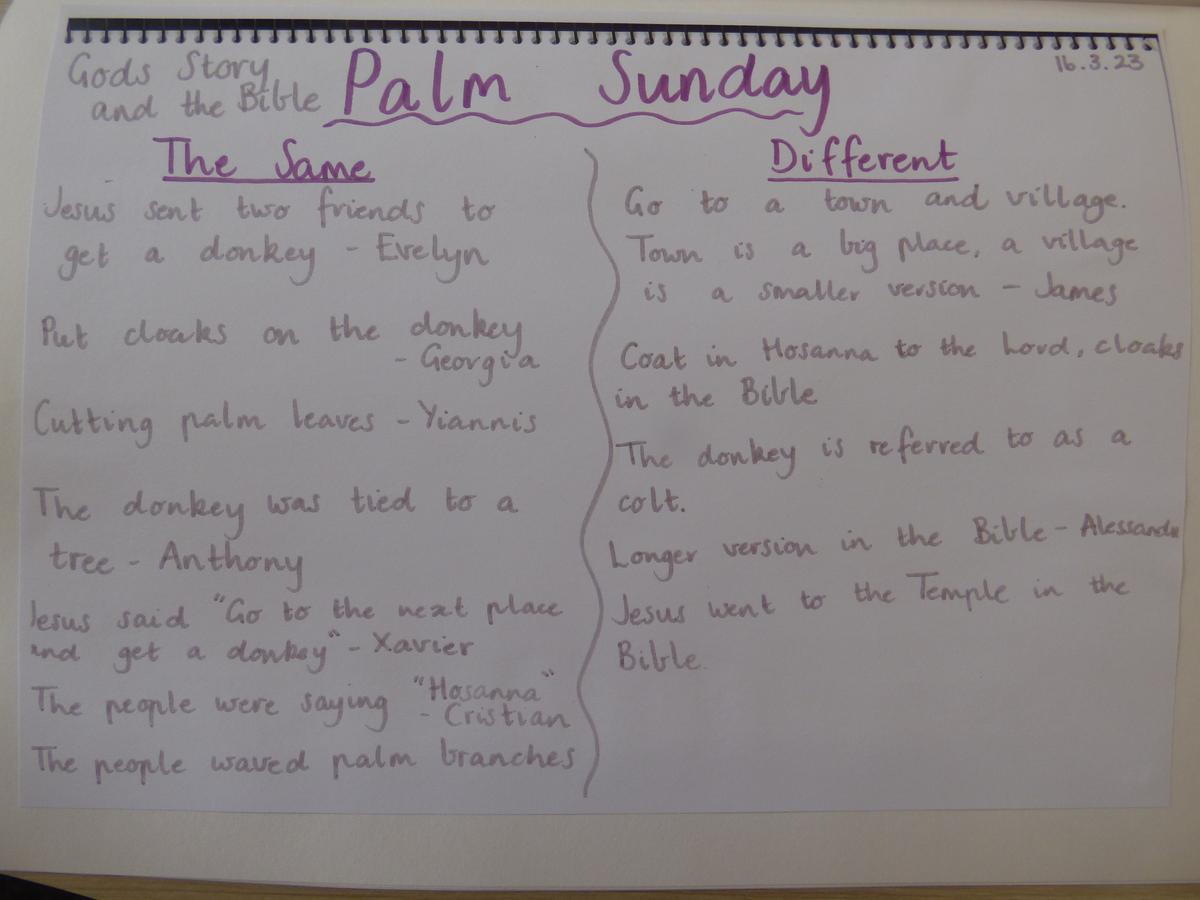 Gods Story
and the Bible
Palm Sunday
16.3.23
The Same
Jesus sent two friends to
get a donkey - Evelyn
Put cloaks on the donkey
- Georgia
Cutting palm leaves - Yiannis
The donkey was tied to a
tree - Anthony
Jesus said "Go to the next place
and get a donkey" - Xavier
The people were saying "Hosanna"
- Cristian
The people waved palm branches
Different
Go to a town and village.
Town is a big place, a village
is a smaller version - James
Coat in Hosanna to the Lord, cloaks
in the Bible
The donkey is referred to as a
colt.
Longer version in the Bible -
Jesus went to the Temple in the
Bible.